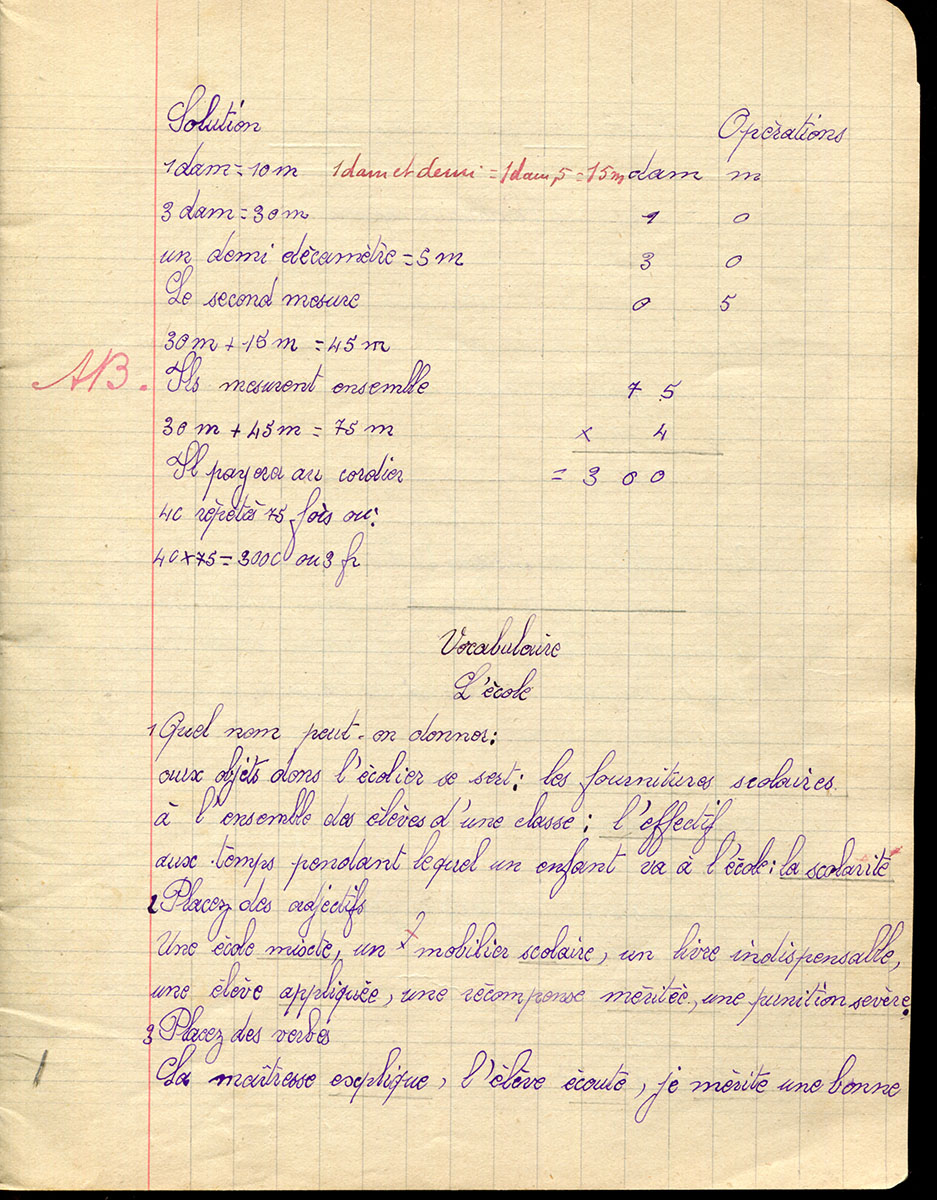 Solution Opérations
1 dam = 10 m 1 dam et demi = 1 dam,5 = 15 m dam m
3 dam = 30 m 1 0
un demi décamètre = 5 m 3 0
Le second mesure 0 5
30 m + 15 m = 45 m
AB. Ils mesurent ensemble 7 5
30 m + 45 m = 75 m x 4
Il payera au cordier = 3 0 0
4c répétés 75 fois ou:
4c x 75 = 300c ou 3 fr
Vocabulaire
L'école
1 Quel nom peut-on donner:
aux objets dons l'écolier se sert: les fournitures scolaires.
à l'ensemble des élèves d'une classe: l'effectif
aux temps pendant lequel un enfant va à l'école: la scolarité
2 Placez des adjectifs
Une école mixte, un x? mobilier scolaire, un livre indispensable,
une élève appliquée, une récompense méritée, une punition sevère.
3 Placez des verbes
La maîtresse explique, l'élève écoute, je mérite une bonne